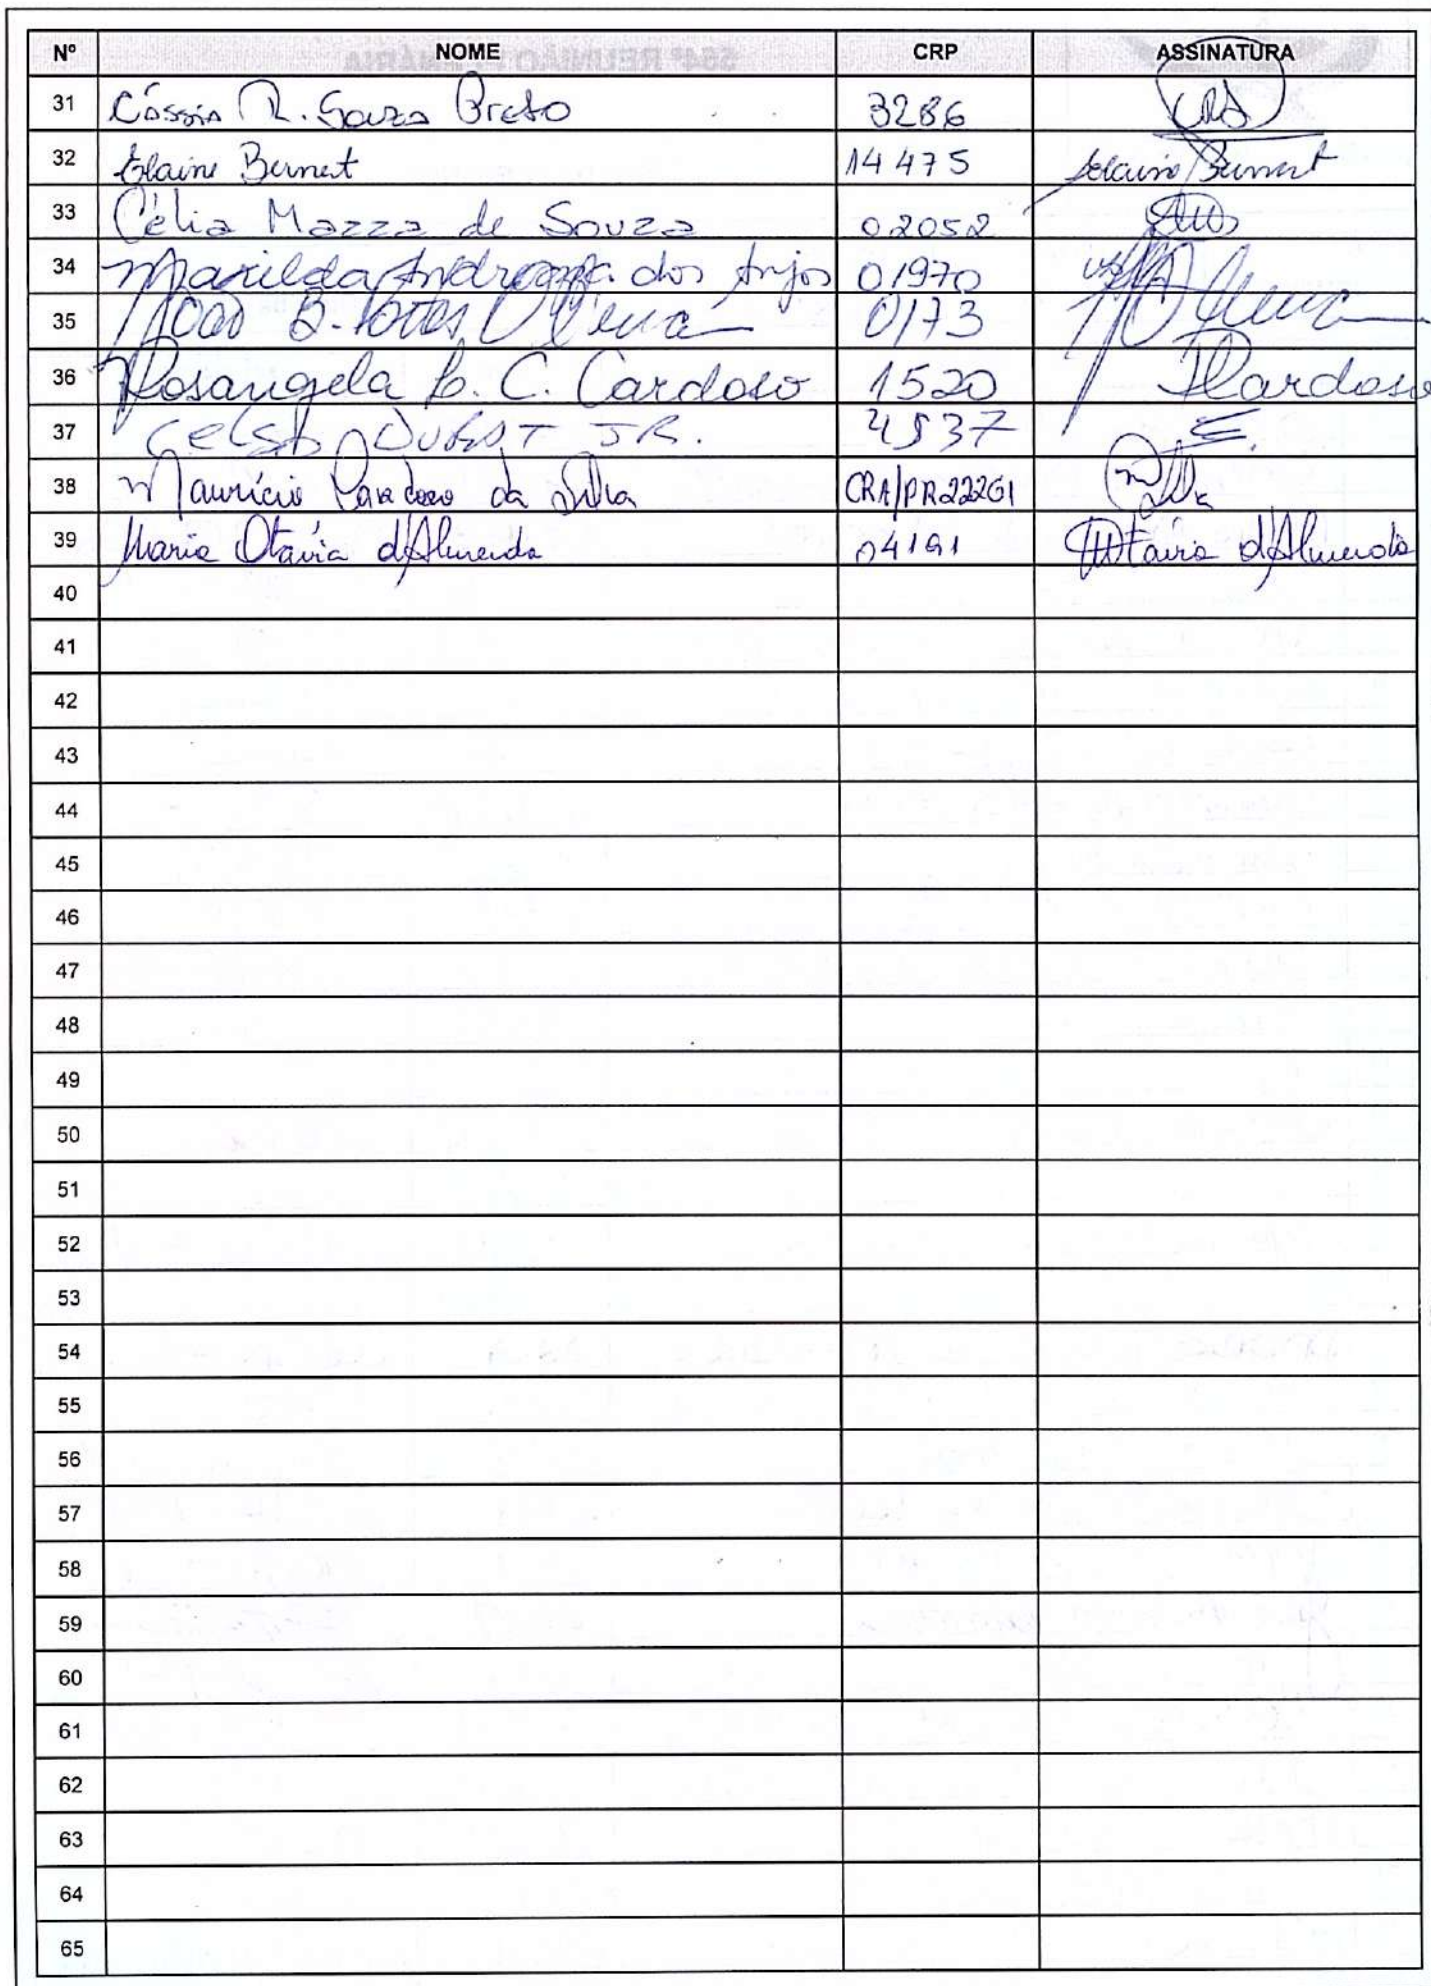 Nº NOME CRP ASSINATURA
31 Cássia R. Souza Preto 3286 CRS
32 Elaine Bernert 14475 Elaine Bernert
33 Célia Mazza de Souza 02052
34 Marilda Andreazza dos Anjos 01970
35 João B. Fortes Oliveira 0173
36 Rosangela C. Cardoso 1520 RCardoso
37 CELSO DURAT JR. 4537
38 Maurício Cardoso da Silva CRA/PR22261
39 Maria Otávia d'Almeida 04191 MOtávia d'Almeida
40
41
42
43
44
45
46
47
48
49
50
51
52
53
54
55
56
57
58
59
60
61
62
63
64
65